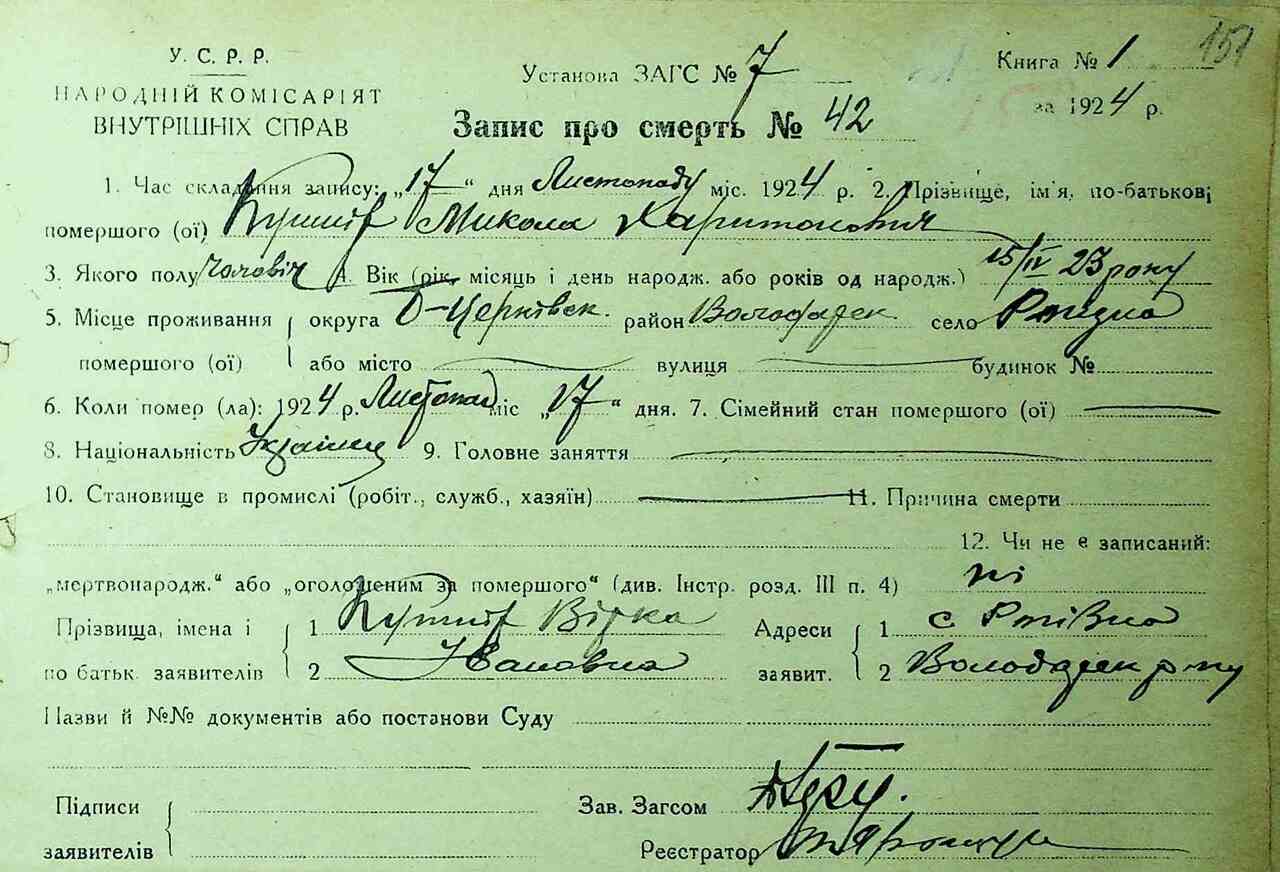 У. С. Р. Р.
НАРОДНІЙ КОМІСАРІЯТ
ВНУТРІШНІХ СПРАВ
Установа ЗАГС № 7
Запис про смерть № 42
Книга № 1
151
за 1924 р.
1. Час складання запису: „17" дня Листопаду міс. 1924 р. 2. Прізвище, ім'я, по-батькові
помершого (ої) Кушнір Микола Харитонович
3. Якого полу чоловіч 4. Вік (рік, місяць і день народж. або років од народж.) 15/IV 23 року
5. Місце проживання округа Б-Церківськ. район Володарск село
помершого (ої) або місто вулиця будинок №
6. Коли помер (ла): 1924 р. Листопад міс „17" дня. 7. Сімейний стан помершого (ої)
8. Національність 9. Головне заняття
10. Становище в промислі (робіт., служб., хазяїн) 11. Причина смерти
12. Чи не є записаний:
„мертвонародж." або „оголошеним за помершого" (див. Інстр. розд. III п. 4) ні
Прізвища, імена і 1 Кушнір Вірка Адреси 1 с Рківна
по батьк. заявителів 2 Івановна заявит. 2 Володарск р-ну
Назви й №№ документів або постанови Суду
Підписи Зав. Загсом
заявителів Реєстратор